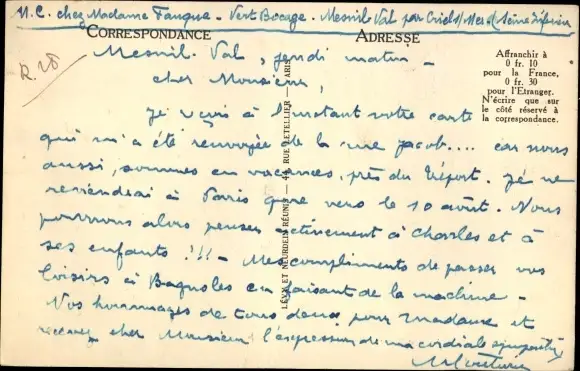 M. C. chez Madame Fauque - Vert Bocage - Mesnil Val par Criel s/ Mer (Seine Inférieure)
CORRESPONDANCE
ADRESSE
Affranchir à
0 fr. 10
pour la France,
0 fr. 30
pour l'Etranger.
N'écrire que sur
le côté réservé à
la correspondance.
LÉVY ET NEURDEIN RÉUNIS — 44, RUE LETELLIER — PARIS
R. 28
Mesnil-Val, jeudi matin -
Cher Monsieur,
Je reçois à l'instant votre carte
qui m'a été renvoyée de la rue Jacob.... car nous
aussi, sommes en vacances, près du Tréport. Je ne
reviendrai à Paris que vers le 10 août. Nous
pourrons alors penser activement à Charles et à
ses enfants !!! - Mes compliments de passer vos
loisirs à Bagnoles en faisant de la machine -
Nos hommages de tous deux pour Madame et
recevez cher Monsieur l'expression de ma cordiale sympathie